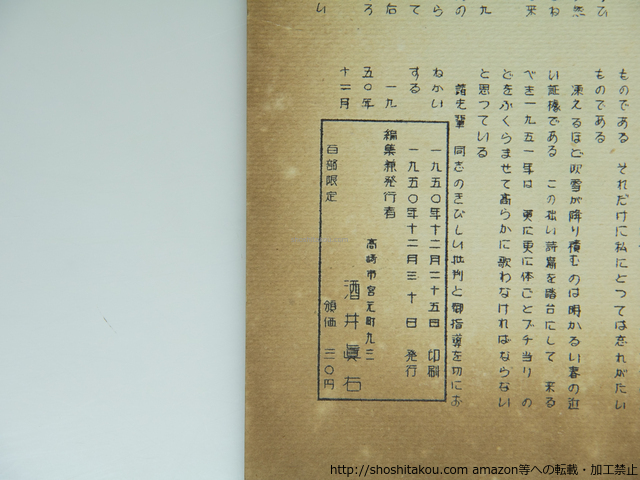 ものである　それだけに私にとつては忘れがたい
ものである
凍えるほど吹雪が降り積むのは明かるい春の近
い証標である　この拙い詩集を踏台にして　来る
べき一九五一年は　更に更に体ごとブチ当り　の
どをふくらませて高らかに歌わなければならない
と思つている
諸先輩　同志のきびしい批判と御指導を切にお
ねがい
する
一九
五〇年
十二月
一九五〇年十二月二十五日　印刷
一九五〇年十二月三十日　発行
編集兼発行者
高崎市宮元町九三
酒井眞右
百部限定
頒価　三〇円
http://shoshitakou.com amazon等への転載・加工禁止